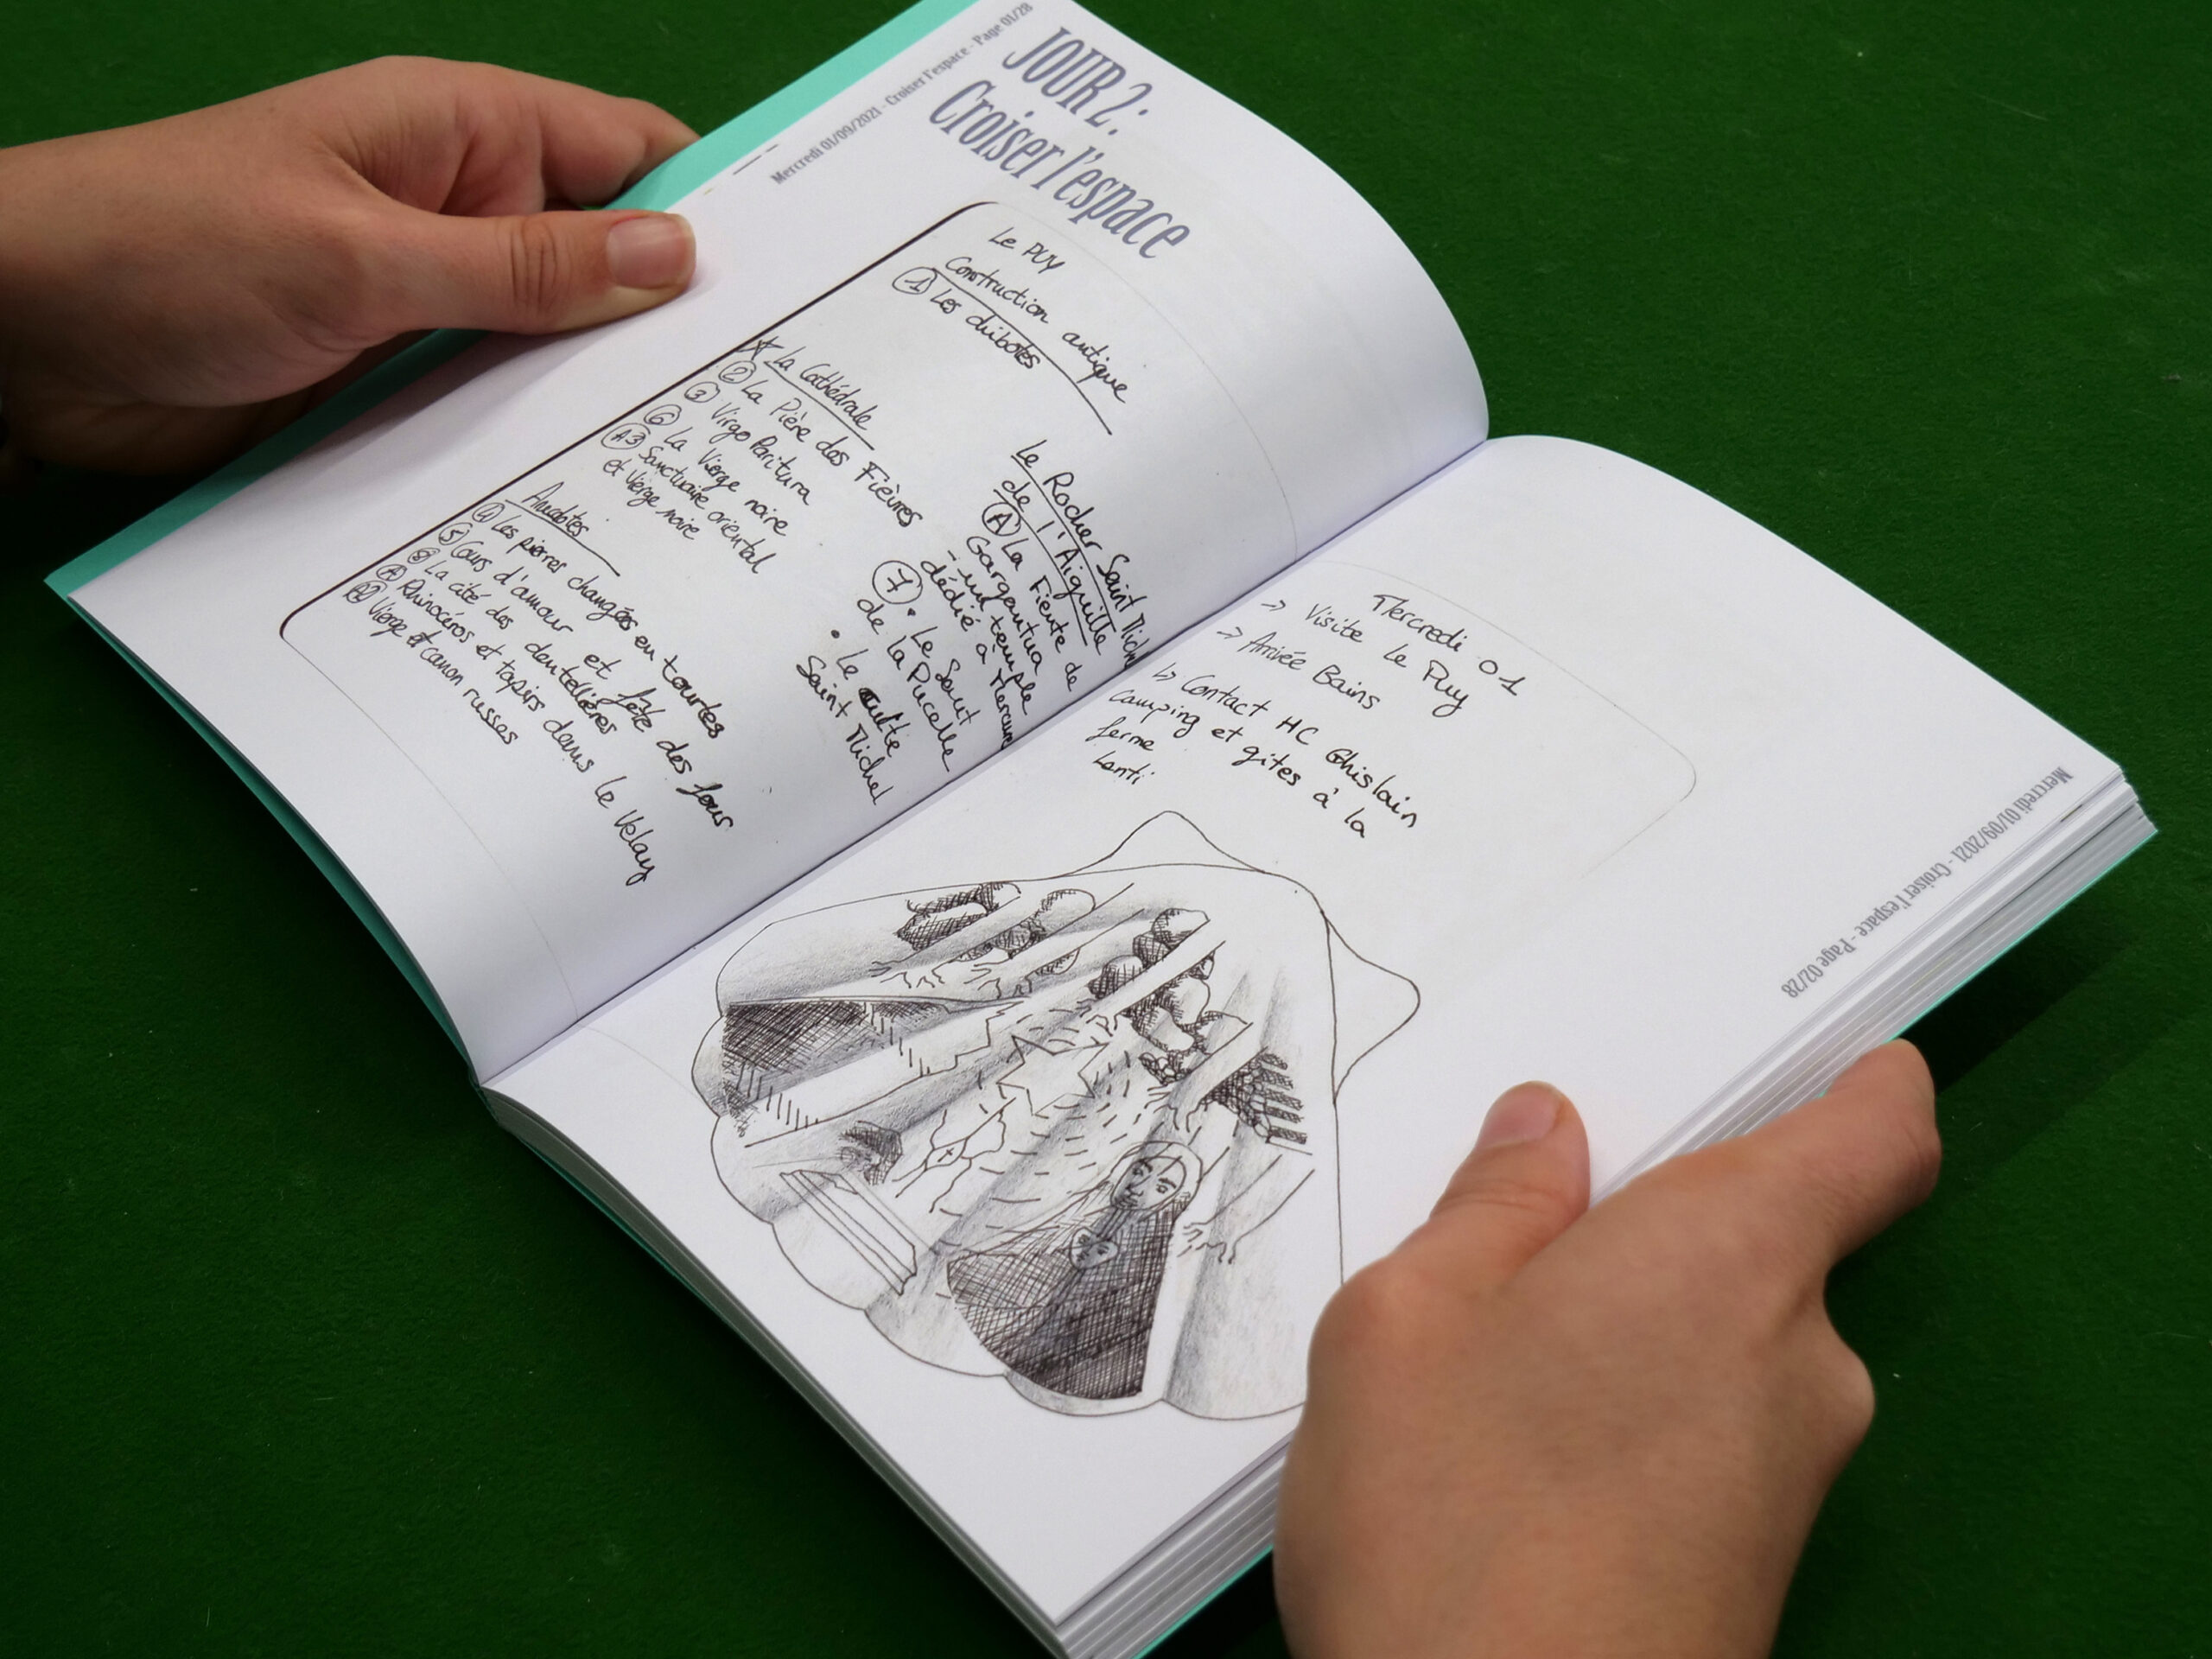 Mercredi 01/09/2021 - Croiser l'espace - Page 01/28
JOUR 2:
Croiser l'espace
Le PUY
Construction antique
① Les dubotes
★ La Cathédrale
② La Pière des Fièvres
③ Virgo Paritura
⑥ La Vierge noire
A3 Sanctuaire oriental
et Vierge noire
Anecdotes
④ Les pierres changées en tourtes
⑤ Cours d'amour et fête des fous
⑧ La cité des dentellières
Rhinocéros et tapirs dans le Velay
A2 Vierge et canon russes
Le Rocher Saint Michel
de l'Aiguille
Ⓐ La Fiente de
Gargantua
- un temple
dédié à Mercure
⑦ • Le Saut
de la Pucelle
• Le culte
Saint Michel
Mercredi 01
→ Visite Le Puy
→ Arrivée Bains
↳ Contact HC Ghislain
camping et gîtes à la
ferme
Lenti
Mercredi 01/09/2021 - Croiser l'espace - Page 02/28